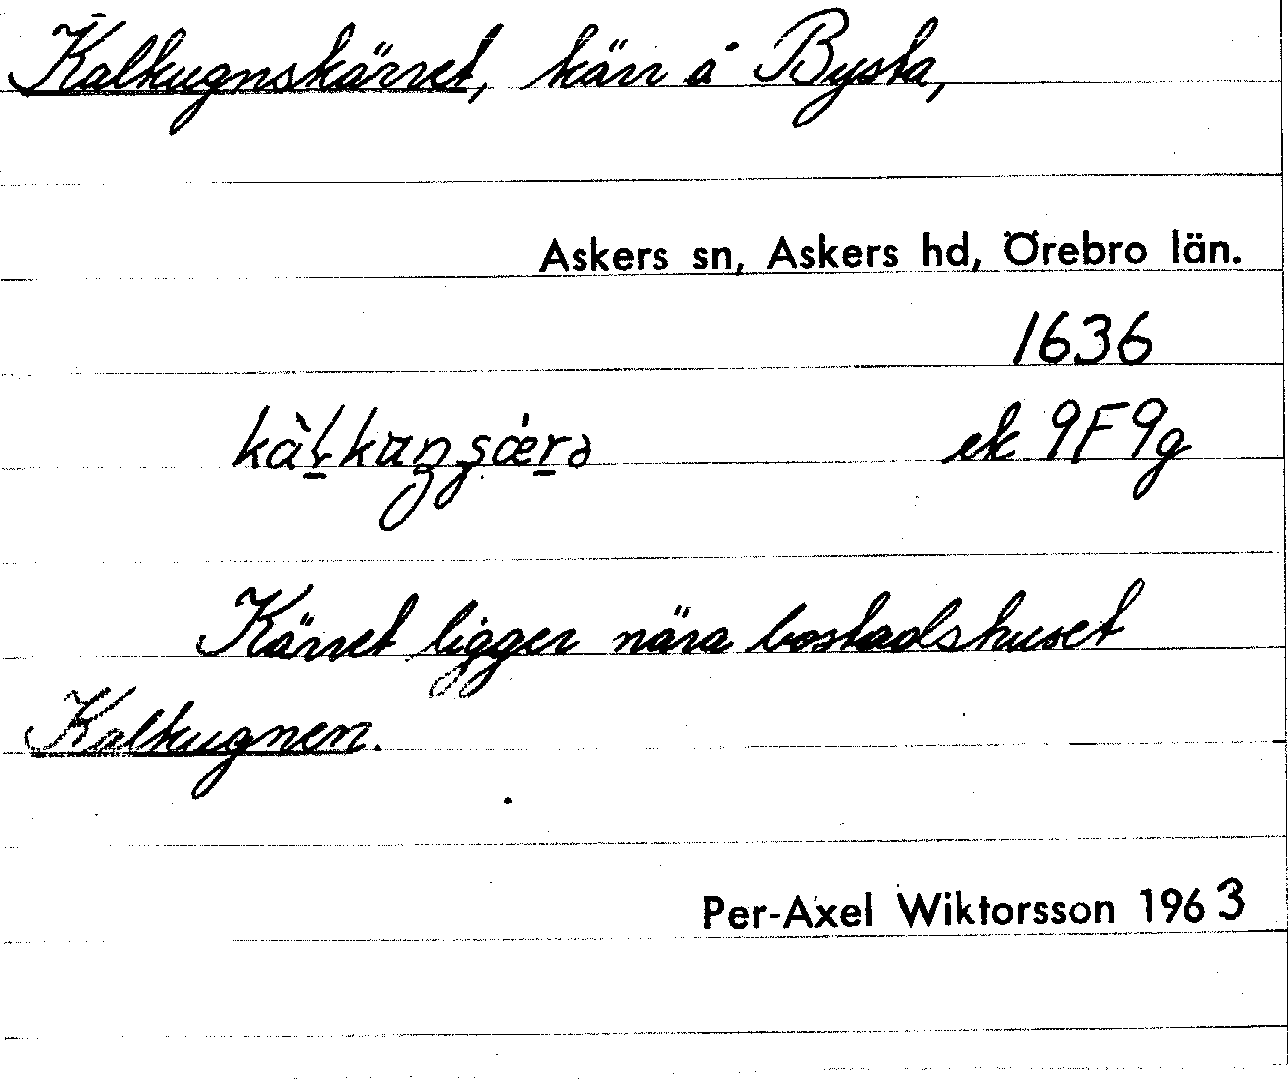 Kalkugnskärret, kärr å Bysta,
Askers sn, Askers hd, Örebro län.
1636
ek 9F9g
Kärret ligger nära bostadshuset
Kalkugnen.
Per-Axel Wiktorsson 1963